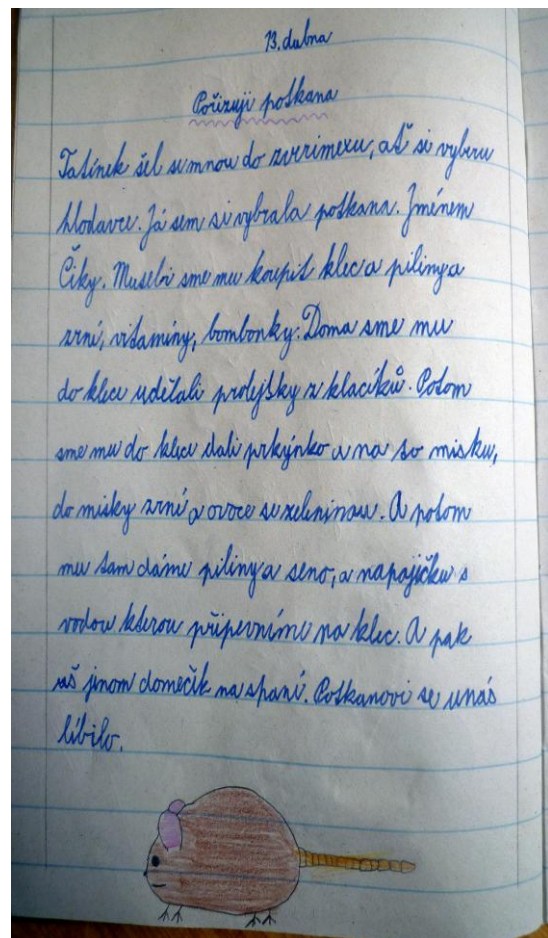 13. dubna
Pořizuji potkana
Tatínek šel semnou do zverimexu, ať si vyberu
hlodavce. Já sem si vybrala potkana. Jménem
Čiky. Museli sme mu koupit klec a piliny a
zrní, vitamíny, bombonky. Doma sme mu
do klece udělali prolejsky z klacíků. Potom
sme mu do klece dali prkýnko a na to misku,
do misky zrní a ovoce se zeleninou. A potom
mu tam dáme piliny a seno, a napajičku s
vodou kterou připevníme na klec. A pak
už jenom domečik na spaní. Potkanovi se unás
líbilo.